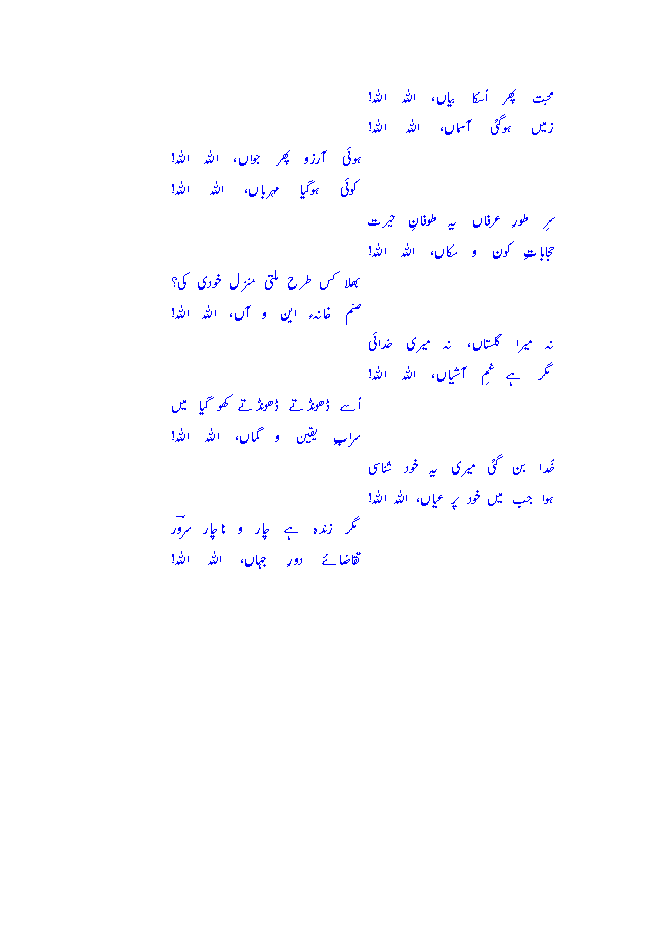 محبت پھر اُسکا بیاں، اللہ اللہ!
زمیں ہوگئی آسماں، اللہ اللہ!
ہوئی آرزو پھر جواں، اللہ اللہ!
کوئی ہوگیا مہرباں، اللہ اللہ!
سرِ طورِ عرفاں یہ طوفانِ حیرت
حجاباتِ کون و مکاں، اللہ اللہ!
بھلا کس طرح ملتی منزل خودی کی؟
صنم خانہء این و آں، اللہ اللہ!
نہ میرا گلستاں، نہ میری خدائی
مگر ہے غمِ آشیاں، اللہ اللہ!
اُسے ڈھونڈتے ڈھونڈتے کھو گیا میں
سرابِ یقین و گماں، اللہ اللہ!
خُدا بن گئی میری یہ خود شناسی
ہوا جب میں خود پر عیاں، اللہ اللہ!
مگر زندہ ہے چار و ناچار سرور
تقاضائے دورِ جہاں، اللہ اللہ!